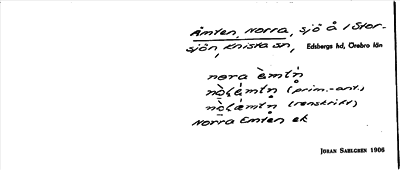 Åmten, Norra, sjö å i Stor-
sjön, Knista sn, Edsbergs hd, Örebro län
nora èmtǹ
(prim.-ant.)
(renskrift)
Norra Emten ek
JOHAN SAHLGREN 1906